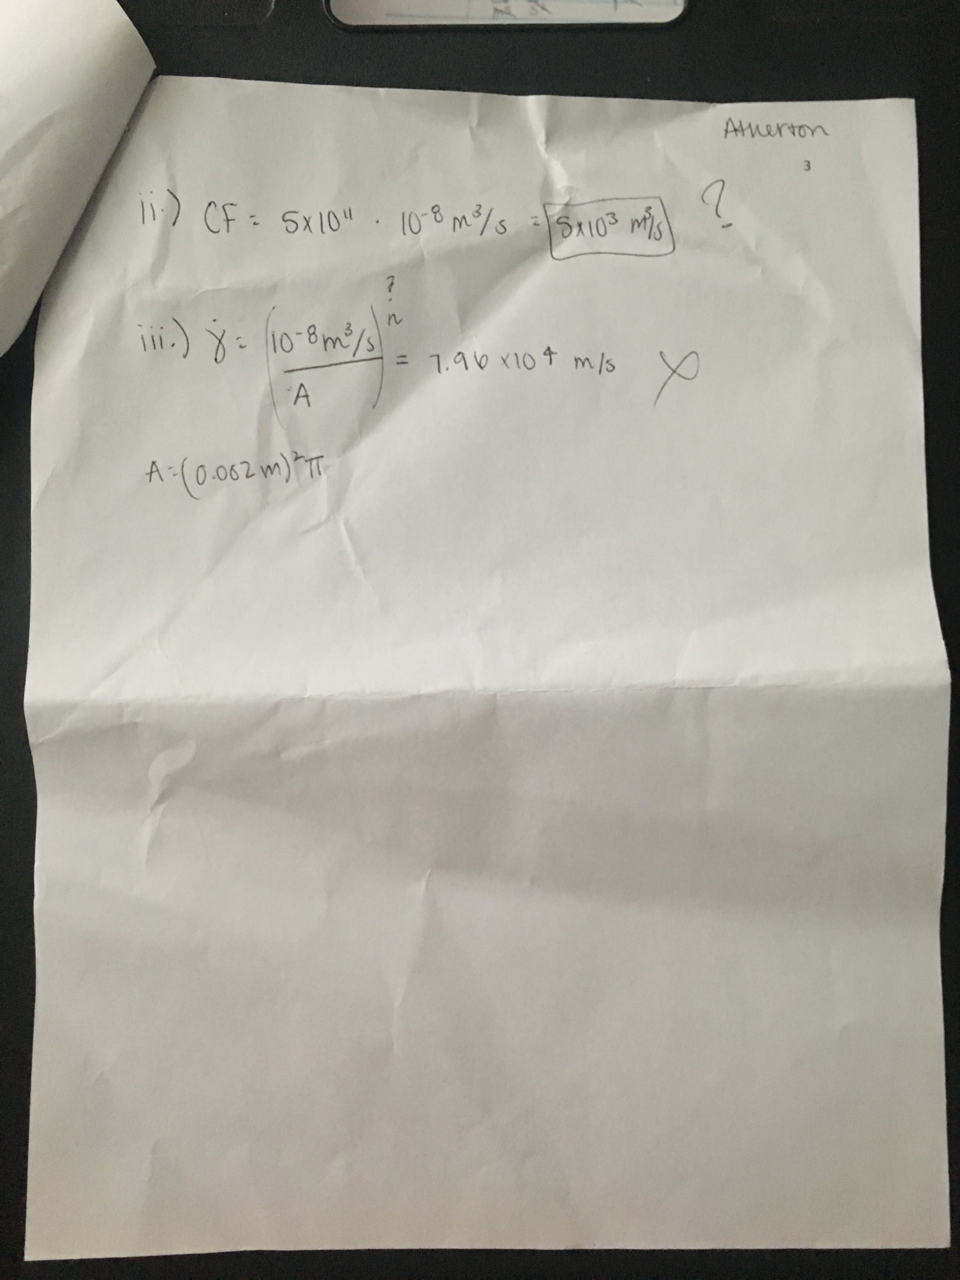 Atherton
3
ii.) CF = 5x10¹¹ · 10⁻⁸ m³/s = 5x10³ m³/s ?
?
iii.) γ̇ = (10⁻⁸ m³/s / A)ⁿ = 7.96 x10⁴ m/s
A=(0.002m)²π